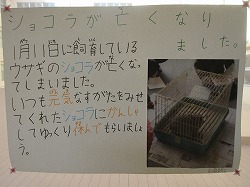 ショコラが亡くなり
ました。
1月11日に飼育している
ウサギのショコラが亡くなっ
てしまいました。
いつも元気なすがたをみせ
てくれたショコラにかんしゃ
してゆっくり休んでもらいましょ
う。